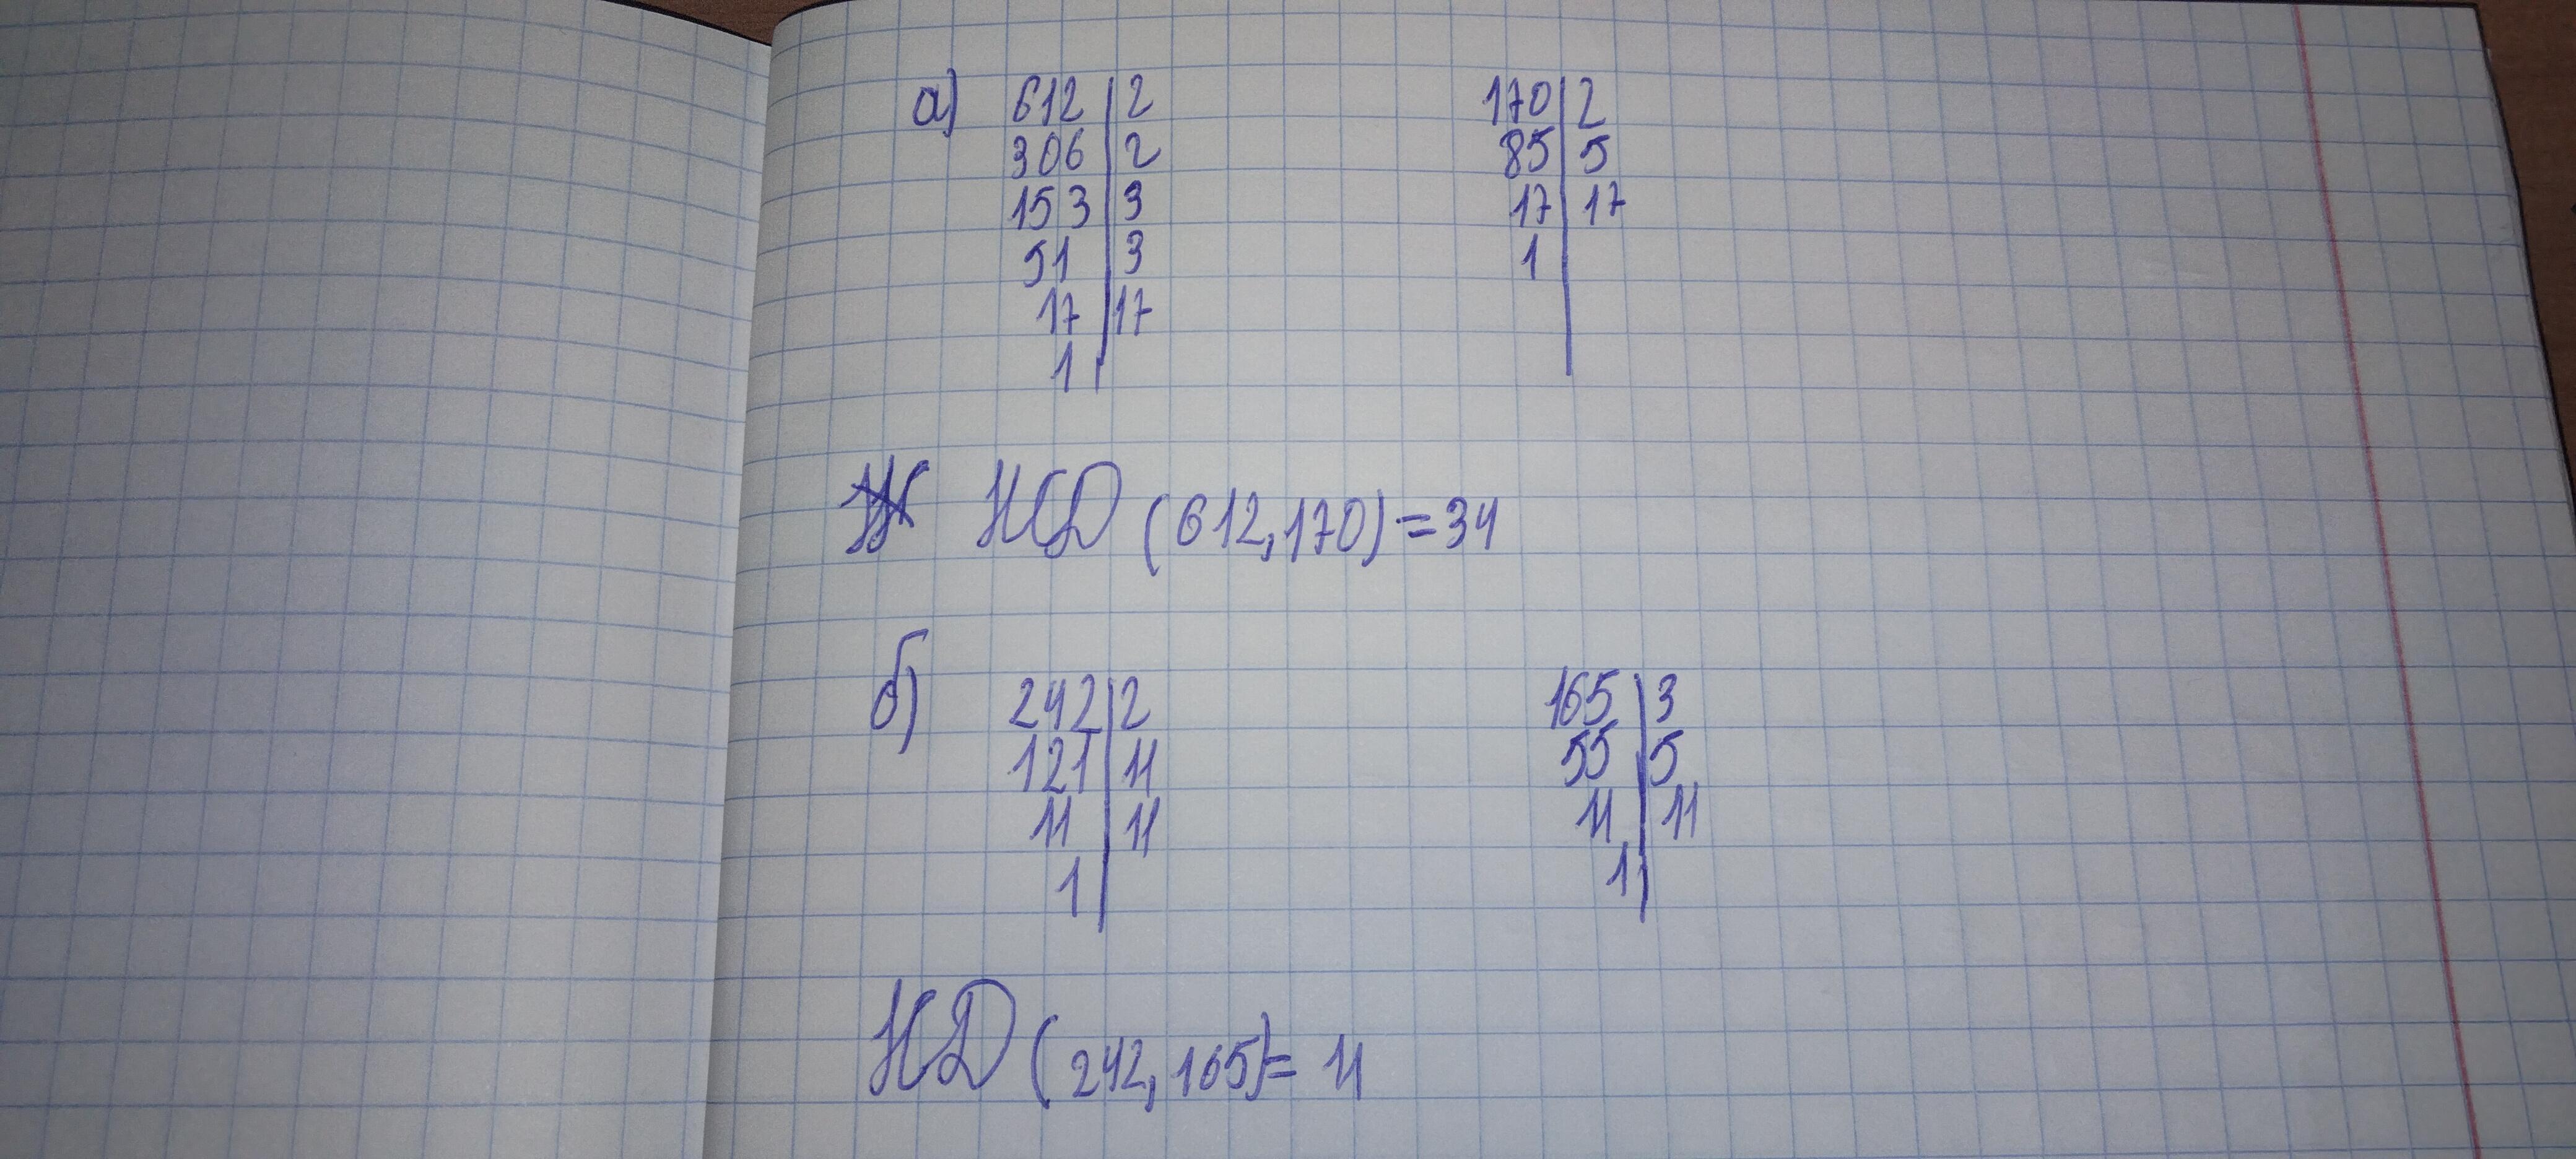 а) 612 | 2 170 | 2
306 | 2 85 | 5
153 | 3 17 | 17
51 | 3 1
17 | 17
1
НСД (612,170) = 34
б) 242 | 2 165 | 3
121 | 11 55 | 5
11 | 11 11 | 11
1 1
НСД (242, 165) = 11